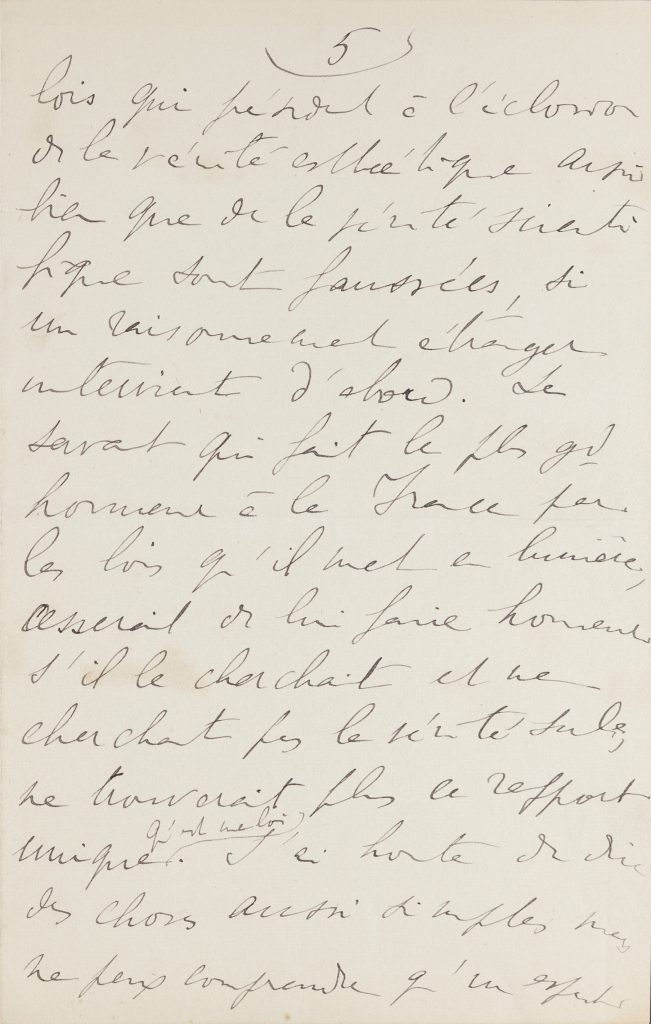 5
lois qui président à l'éclosion
de la vérité esthétique aussi
bien que de la vérité scienti
fique sont faussées, si
un raisonnement étranger
intervient d'abord. Le
savant qui fait le plus gd
honneur à la France par
les lois qu'il met en lumière,
cesserait de lui faire honneur
s'il le cherchait et ne
cherchait pas la vérité seule,
ne trouverait plus ce rapport
qu'est une loi
unique. J'ai honte de dire
des choses aussi simples mais
ne peux comprendre qu'un esprit